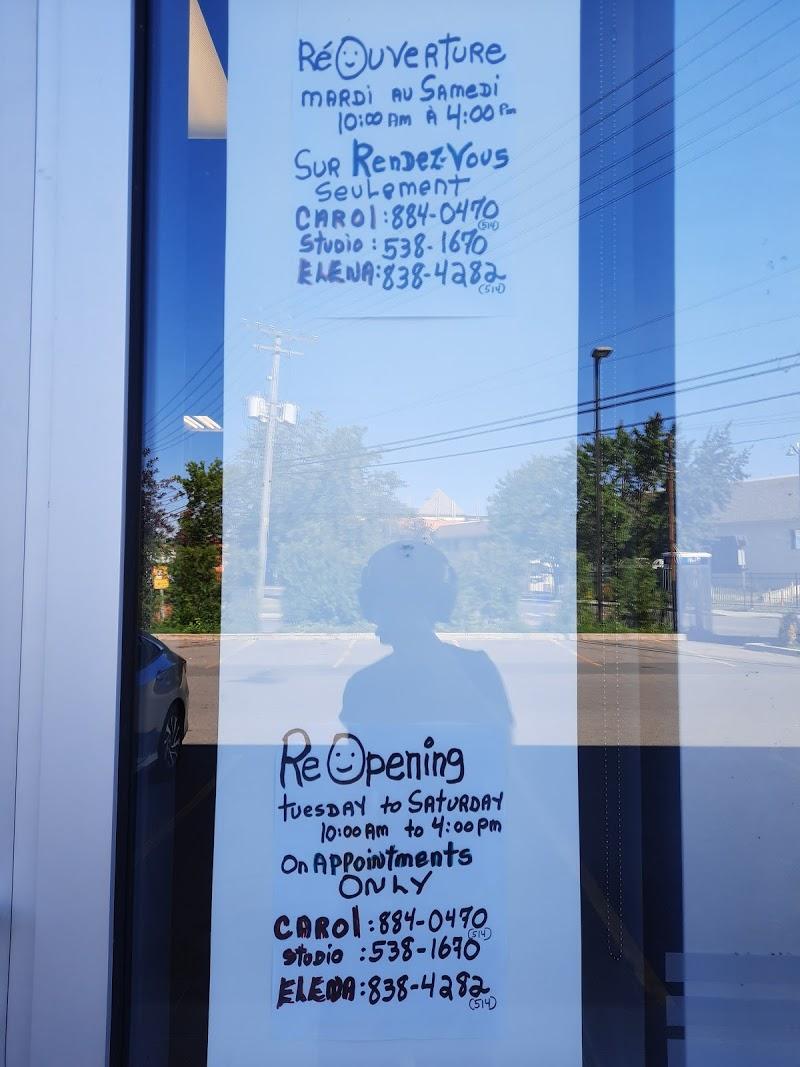 RéOuverture
Mardi au Samedi
10:00 Am à 4:00 Pm
Sur Rendez-Vous
Seulement
Carol: 884-0470
(514)
Studio: 538-1670
Elena: 838-4282
(514)
ReOpening
Tuesday to Saturday
10:00 Am to 4:00 pm
On Appointments
ONLY
Carol: 884-0470
(514)
Studio: 538-1670
Elena: 838-4282
(514)